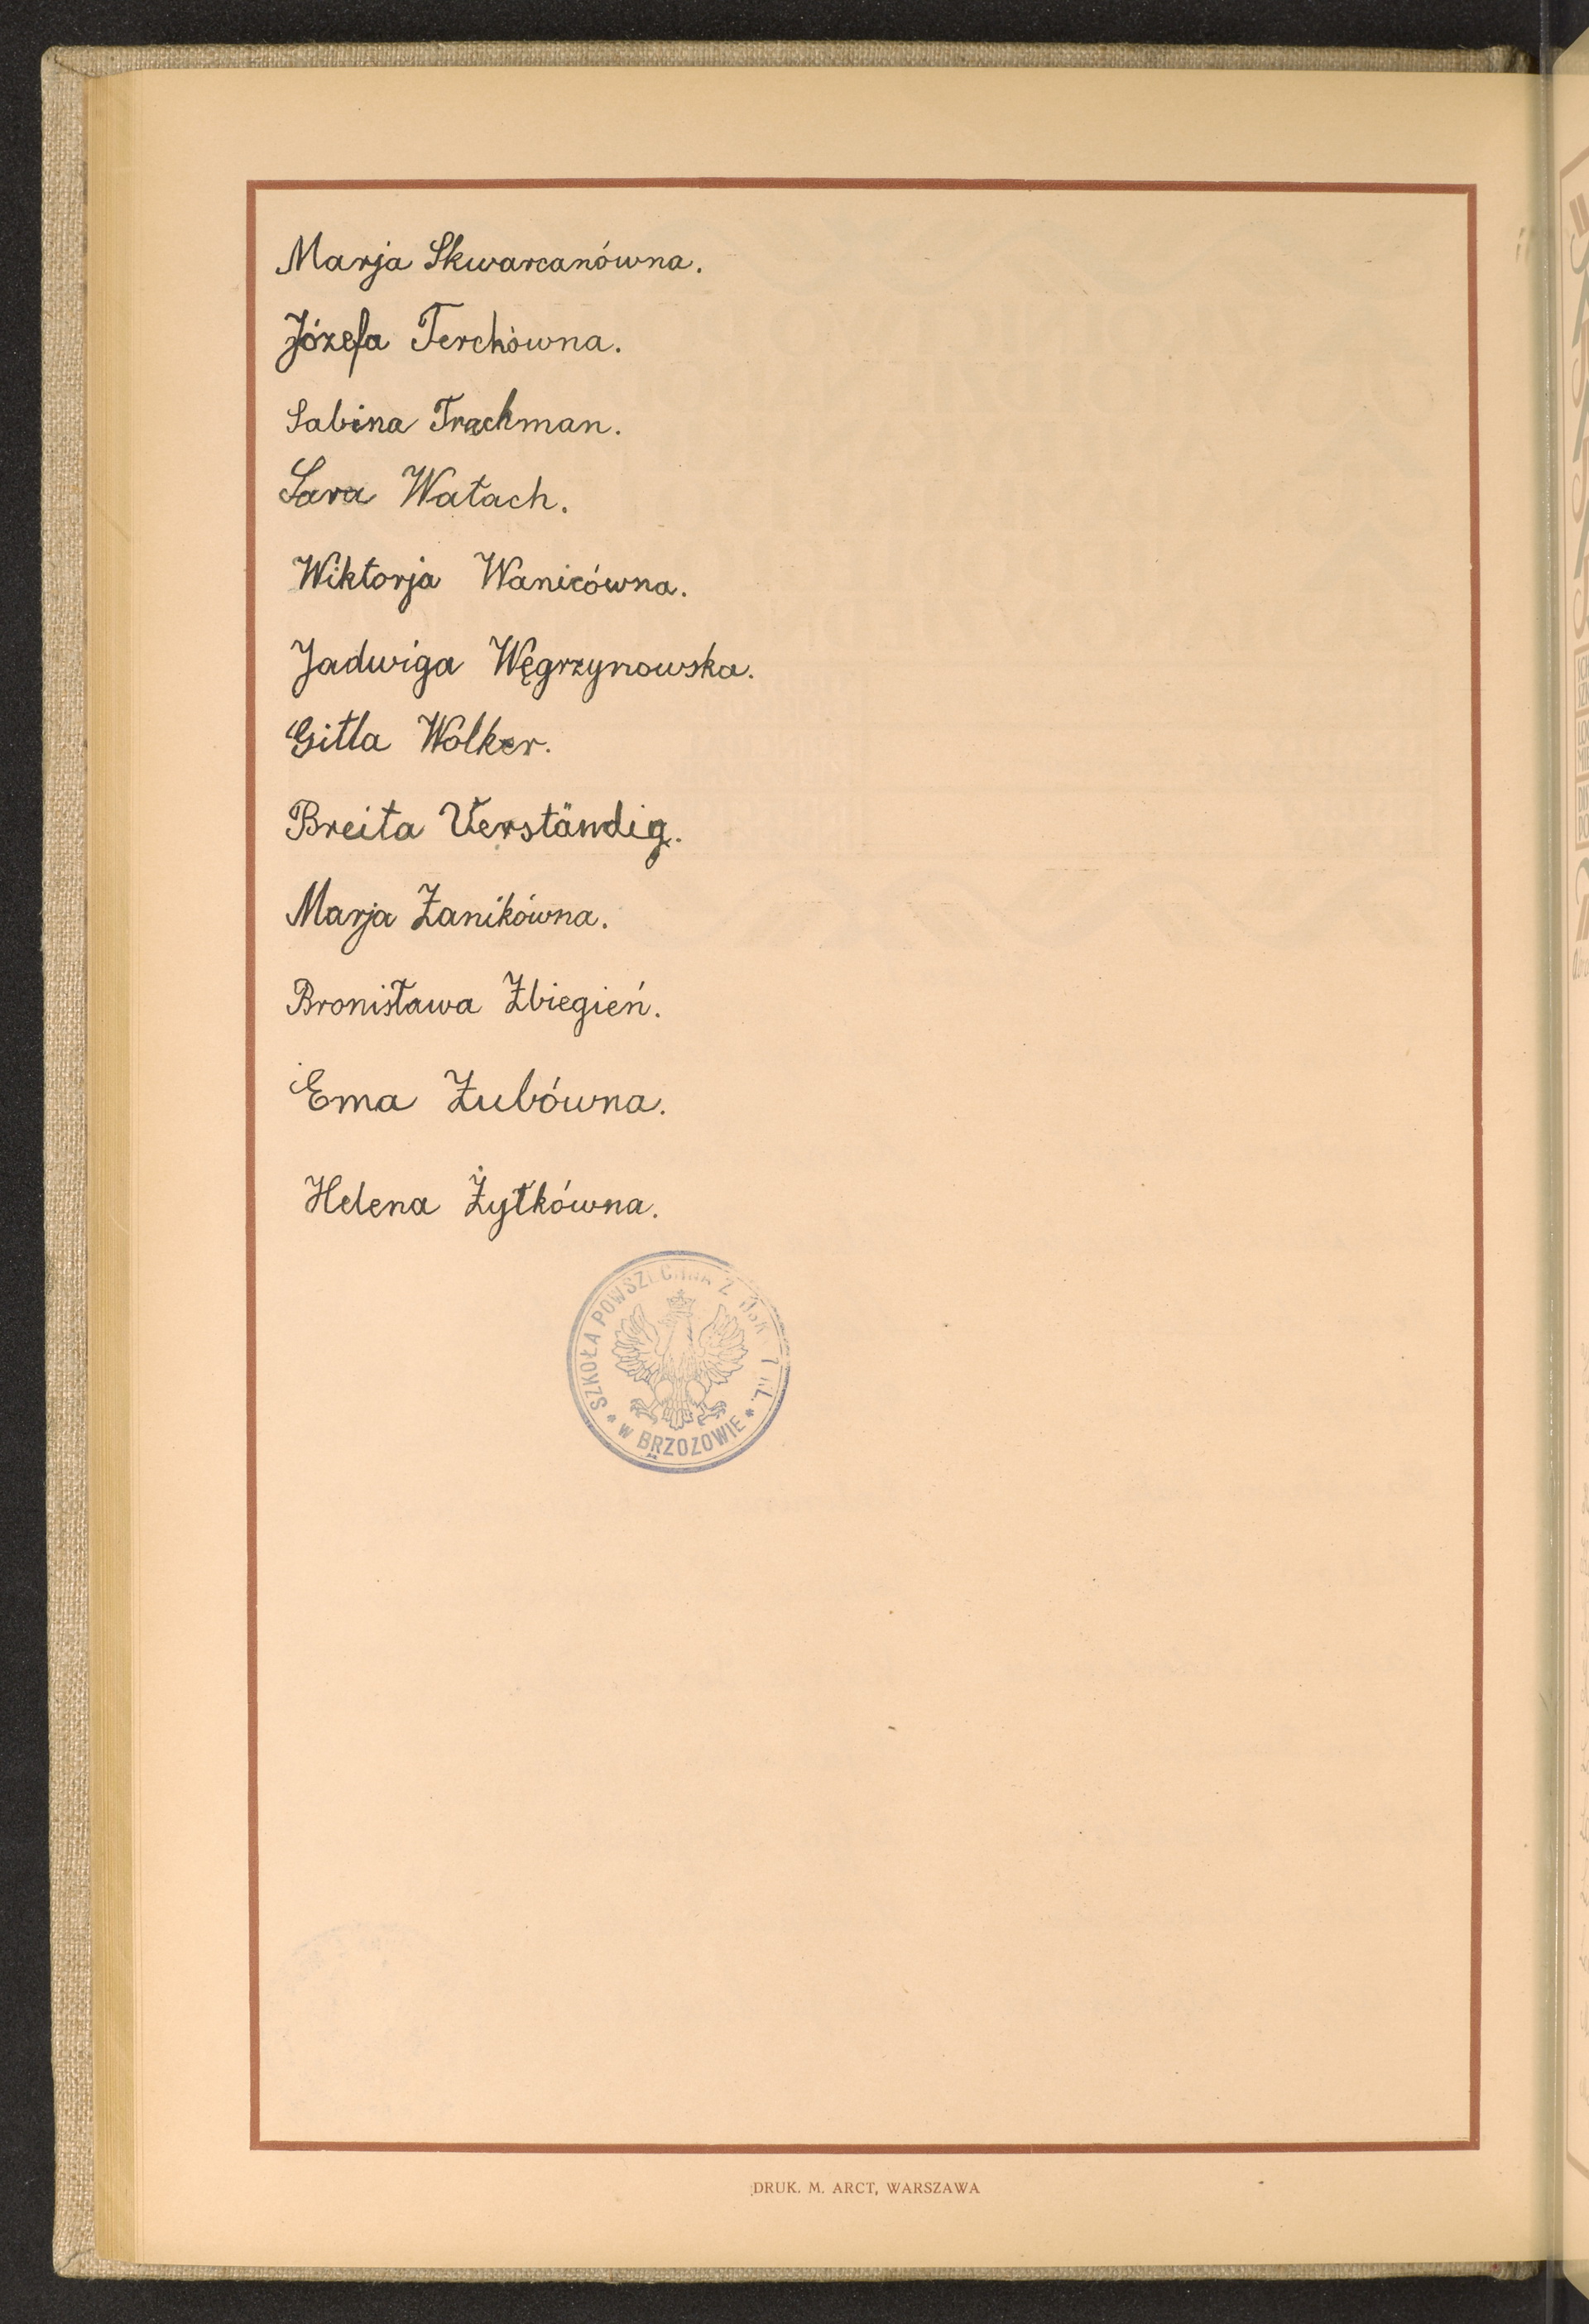 Marja Skwarcanówna.
Józefa Terchówna.
Sabina Trachman.
Sara Watach.
Wiktorja Wanicówna.
Jadwiga Węgrzynowska.
Gitla Wolker.
Breita Verständig.
Marja Zanikówna.
Bronisława Zbiegień.
Ema Zubówna.
Helena Żytkówna.
SZKOŁA POWSZECHNA Ż 7 KL.
* W BRZOZOWIE *
DRUK. M. ARCT, WARSZAWA